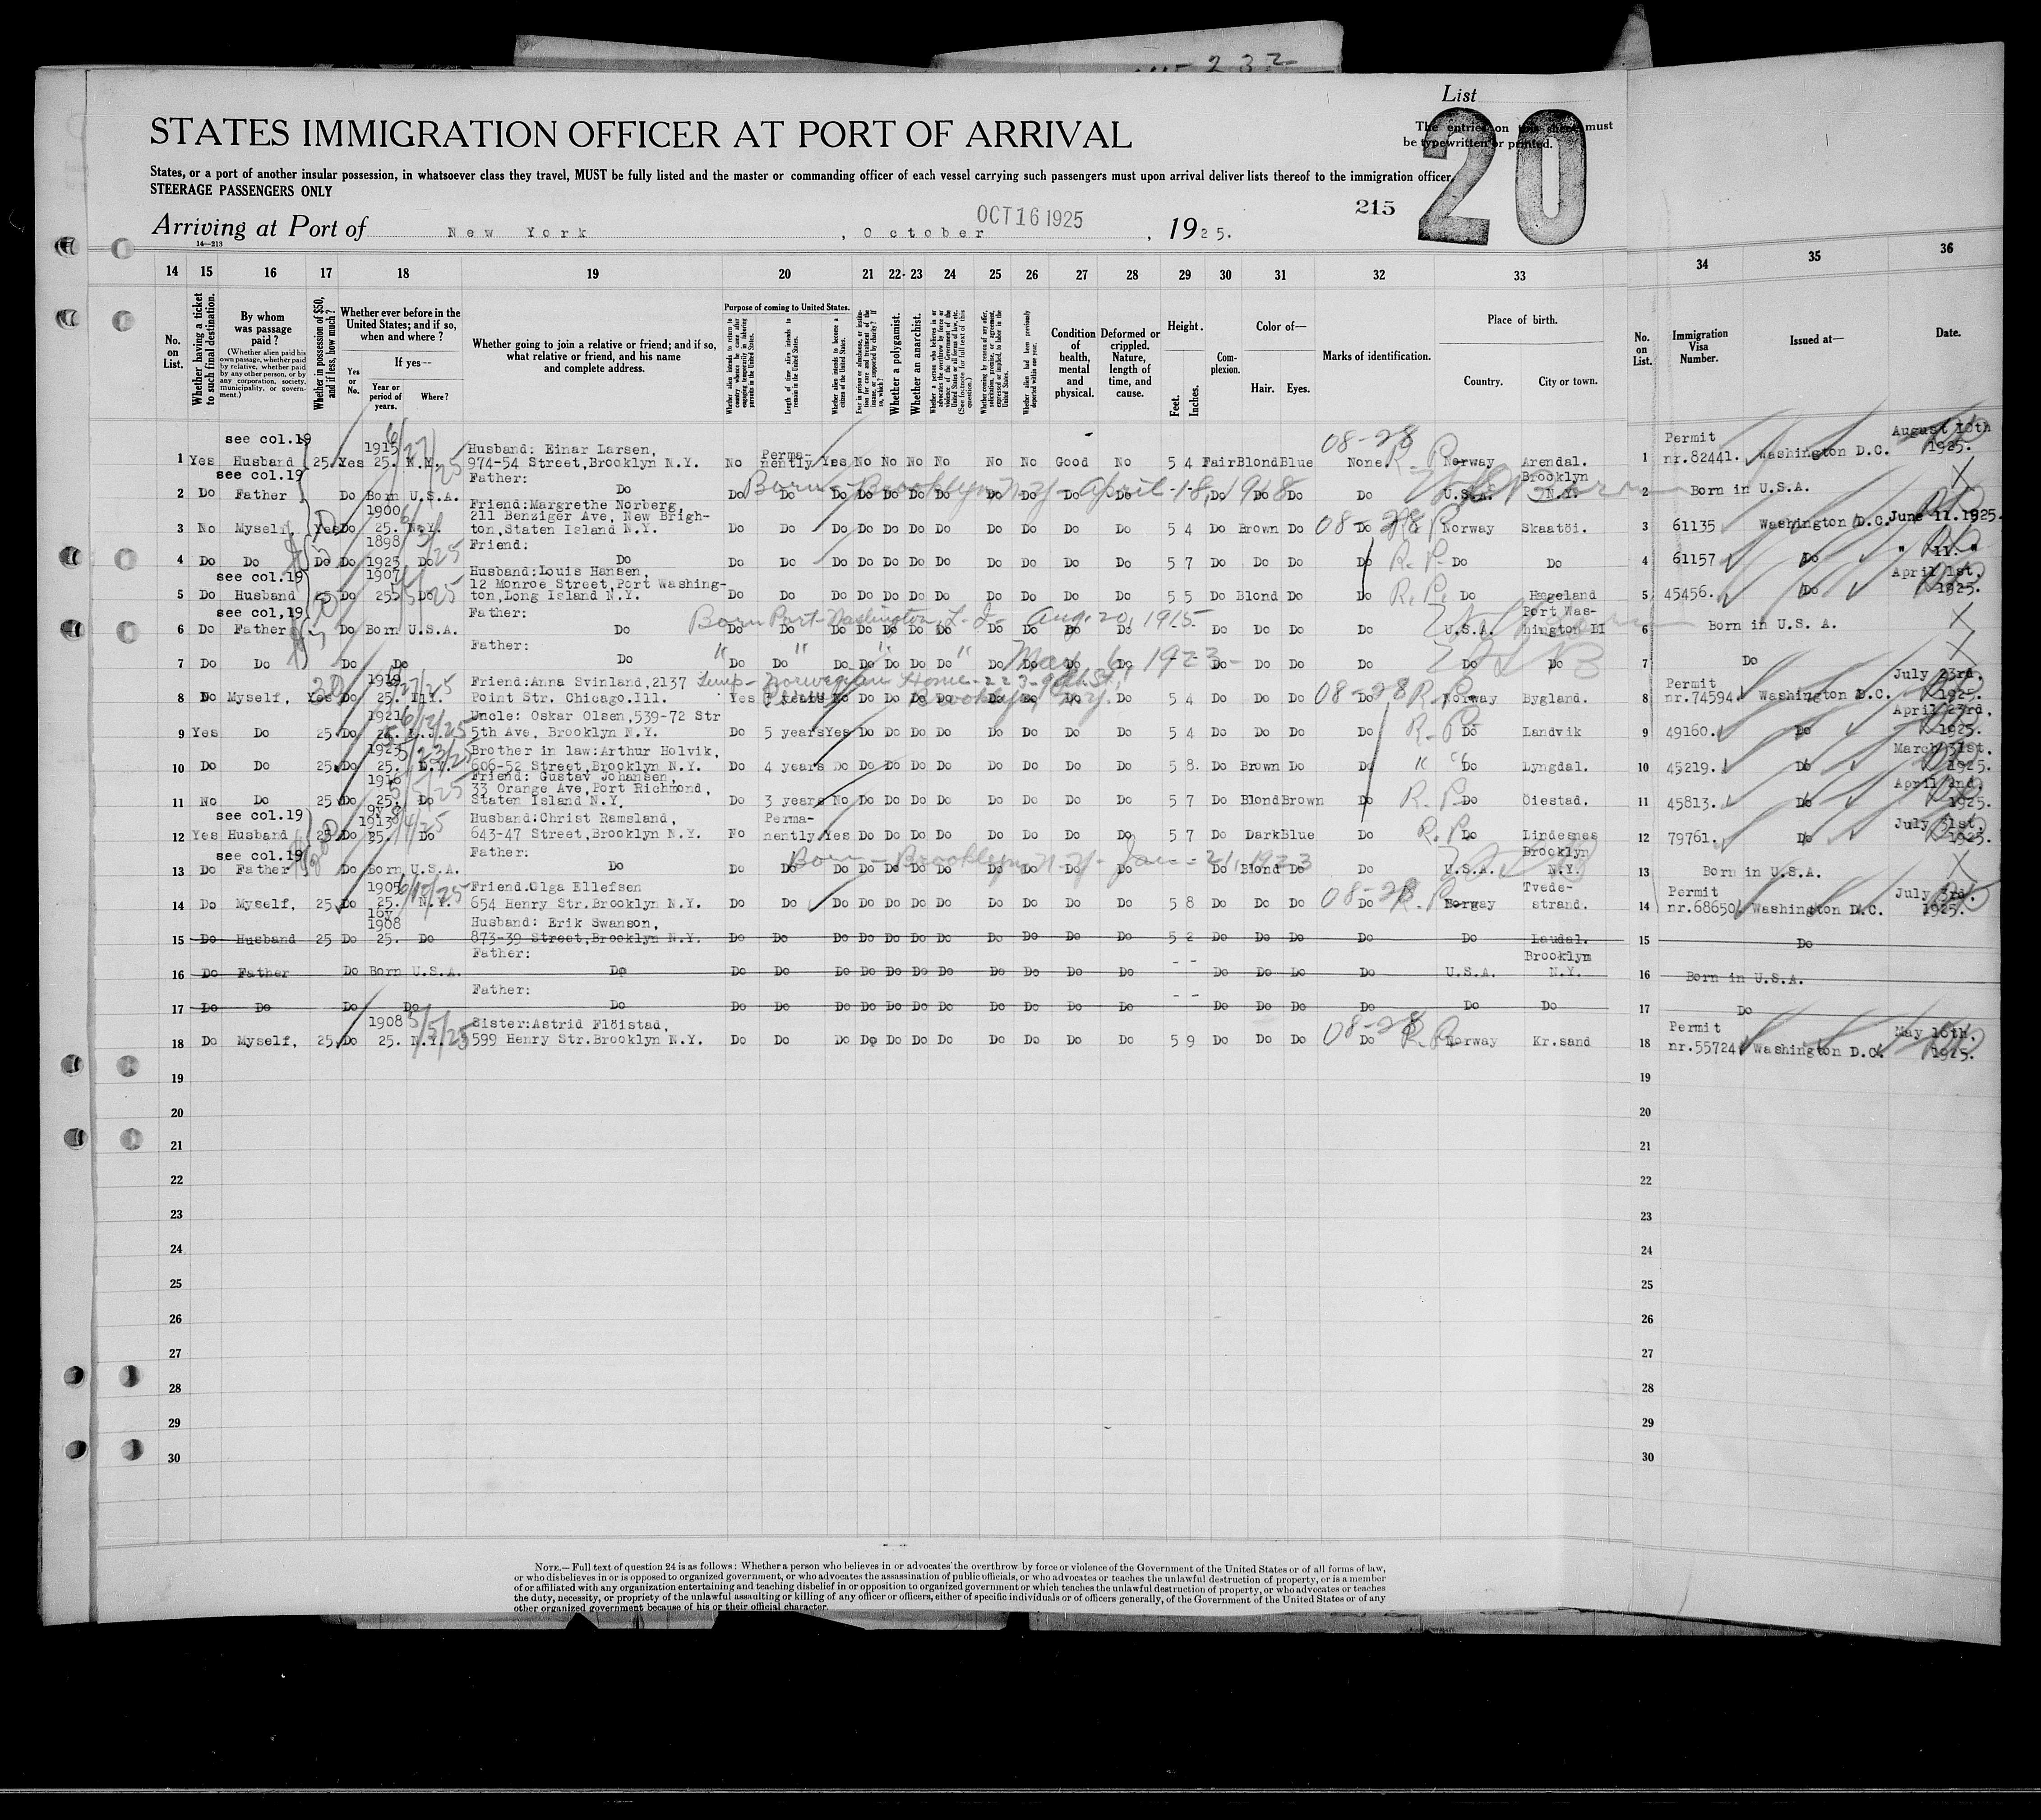 232
List
The entries on this sheet must
be typewritten or printed.
20
STATES IMMIGRATION OFFICER AT PORT OF ARRIVAL
States, or a port of another insular possession, in whatsoever class they travel, MUST be fully listed and the master or commanding officer of each vessel carrying such passengers must upon arrival deliver lists thereof to the immigration officer.
STEERAGE PASSENGERS ONLY
215
Arriving at Port of New York, October OCT 16 1925, 1925.
14—213
14 15 16 17 18 19 20 21 22 23 24 25 26 27 28 29 30 31 32 33 34 35 36
No. on List.
Whether having a ticket to such final destination.
By whom was passage paid?
(Whether alien paid his own passage, whether paid by relative, whether paid by any other person, or by any corporation, society, municipality, or government.)
Whether in possession of $50, and if less, how much?
Whether ever before in the United States; and if so, when and where?
Yes or No.
If yes—
Year or period of years.
Where?
Whether going to join a relative or friend; and if so, what relative or friend, and his name and complete address.
Purpose of coming to United States.
Length of time alien intends to remain in the United States.
Whether alien intends to become a citizen of the United States.
Whether a polygamist.
Whether an anarchist.
Condition of health, mental and physical.
Deformed or crippled. Nature, length of time, and cause.
Height.
Feet. Inches.
Complexion.
Color of—
Hair. Eyes.
Marks of identification.
Place of birth.
Country. City or town.
No. on List.
Immigration Visa Number.
Issued at—
Date.
see col.19 1915 Husband: Einar Larsen, Perma- 08-28 Permit August 10th
1 Yes Husband 25 Yes 25. N.Y. 974-54 Street,Brooklyn N.Y. No nently Yes No No No No No No Good No 5 4 Fair Blond Blue None. R.P. Norway Arendal. 1 nr.82441. Washington D.C. 1925.
see col.19 Father: Born - Brooklyn N.Y - April - 18, 1918 Brooklyn
2 Do Father Do Born U.S.A. Do Do Do Do Do Do Do Do Do Do Do Do Do Do Do Do U.S.A. N.Y. 2 Born in U.S.A. X
1900 Friend:Margrethe Norberg,
211 Benziger Ave, New Brigh-
3 No Myself, Yes Do 25. N.Y. ton,Staten Island N.Y. Do Do Do Do Do Do Do Do Do Do Do 5 4 Do Brown Do 08-28 Do Norway Skaatöi. 3 61135 Washington D.C. June 11.1925.
1898 Friend:
4 Do Do Do Do 1925 Do Do Do Do Do Do Do Do Do Do Do Do Do 5 7 Do Do Do Do R.P. Do Do 4 61157 Do " 11. "
see col.19 1907 Husband:Louis Hansen, April 1st.
12 Monroe Street,Port Washing-
5 Do Husband 25 Do 25. Do ton,Long Island N.Y. Do Do Do Do Do Do Do Do Do Do Do 5 5 Do Blond Do Do R.P. Do Hægeland 5 45456. Do 1925.
see col,19 Father: Born Port Washington, L. I. Aug. 20, 1915 Port Was-
6 Do Father Do Born U.S.A. Do Do Do Do Do Do Do Do Do Do Do Do - - Do Do Do Do U.S.A. hington LI 6 Born in U.S. A. X
Father: " " " " May 6, 1923-
7 Do Do Do Do Do Do Do Do Do Do Do Do Do Do Do Do Do Do Do Do Do Do 7 Do X
1919 Friend:Anna Svinland,2137 Norwegian Home - 223- St. Permit July 23rd.
8 Do Myself, Yes Do 25. Ill. Point Str. Chicago.Ill. Yes years No Do Do Do Do Do Do Do Do 5 4 Do Do Do 08-28 Do R.P. Norway Bygland. 8 nr.74594 Washington D.C. 1925.
Brooklyn, N.Y.
1921 Uncle: Oskar Olsen,539-72 Str April 23rd.
9 Yes Do 25 Do 5th Ave, Brooklyn N.Y. Do 5 years Yes Do Do Do Do Do Do Do Do 5 4 Do Do Do Do R.P. Do Landvik 9 49160. Do 1925.
1923 Brother in law:Arthur Holvik, March 31st.
10 Do Do 25 Do 25. N.Y. 606-52 Street,Brooklyn N.Y. Do 4 years Do Do Do Do Do Do Do Do Do 5 8. Do Brown Do Do " " Do Lyngdal. 10 45219. Do 1925.
1916 Friend: Gustav Johansen, April 2nd.
33 Orange Ave,Port Richmond,
11 No Do 25 Do 25. Do Staten Island N.Y. Do 3 years No Do Do Do Do Do Do Do Do 5 7 Do Blond Brown Do R.P. Do Öiestad. 11 45813. Do 1925.
see col.19 1913 Husband:Christ Ramsland, Perma- July 31st,
12 Yes Husband 25 Do 25. Do 643-47 Street,Brooklyn N.Y. No nently Yes Do Do Do Do Do Do Do Do 5 7 Do Dark Blue Do R.P. Do Lindesnes 12 79761. Do 1925.
see col.19 Father: Born - Brooklyn N.Y- Jan - 21, 1923 Brooklyn
13 Do Father Do Born U.S.A. Do Do Do Do Do Do Do Do Do Do Do Do Do Blond Do Do U.S.A. N.Y. 13 Born in U.S.A. X
1905 Friend.Olga Ellefsen Tvede- Permit July 3rd.
14 Do Myself, 25 Do 25. N.Y. 654 Henry Str.Brooklyn N.Y. Do Do Do Do Do Do Do Do Do Do Do 5 8 Do Do Do 08-28 Do R.P. Norway strand. 14 nr.68650 Washington D.C. 1925.
16y
1908 Husband: Erik Swanson,
15 Do Husband 25 Do 25. Do 873-39 Street,Brooklyn N.Y. Do Do Do Do Do Do Do Do Do Do Do 5 2 Do Do Do Do Do Laudal. 15 Do
Father: Brooklyn
16 Do Father Do Born U.S.A. Do Do Do Do Do Do Do Do Do Do Do Do - - Do Do Do Do U.S.A. N.Y. 16 Born in U.S.A.
Father:
17 Do Do Do Do Do Do Do Do Do Do Do Do Do Do Do Do - - Do Do Do Do Do Do 17 Do
1908 Sister:Astrid Flöistad, Permit May 16th,
18 Do Myself, 25 Do 25. N.Y. 599 Henry Str.Brooklyn N.Y. Do Do Do Do Do Do Do Do Do Do Do 5 9 Do Do Do 08-28 Do R.P. Norway Kr.sand 18 nr.55724 Washington D.C. 1925.
19 19
20 20
21 21
22 22
23 23
24 24
25 25
26 26
27 27
28 28
29 29
30 30
NOTE.—Full text of question 24 is as follows: Whether a person who believes in or advocates the overthrow by force or violence of the Government of the United States or of all forms of law,
or who disbelieves in or is opposed to organized government, or who advocates the assassination of public officials, or who advocates or teaches the unlawful destruction of property, or is a member
of or affiliated with any organization entertaining and teaching disbelief in or opposition to organized government or which teaches the unlawful destruction of property, or who advocates or teaches
the duty, necessity, or propriety of the unlawful assaulting or killing of any officer or officers, either of specific individuals or of officers generally, of the Government of the United States or of any
other organized government because of his or their official character.